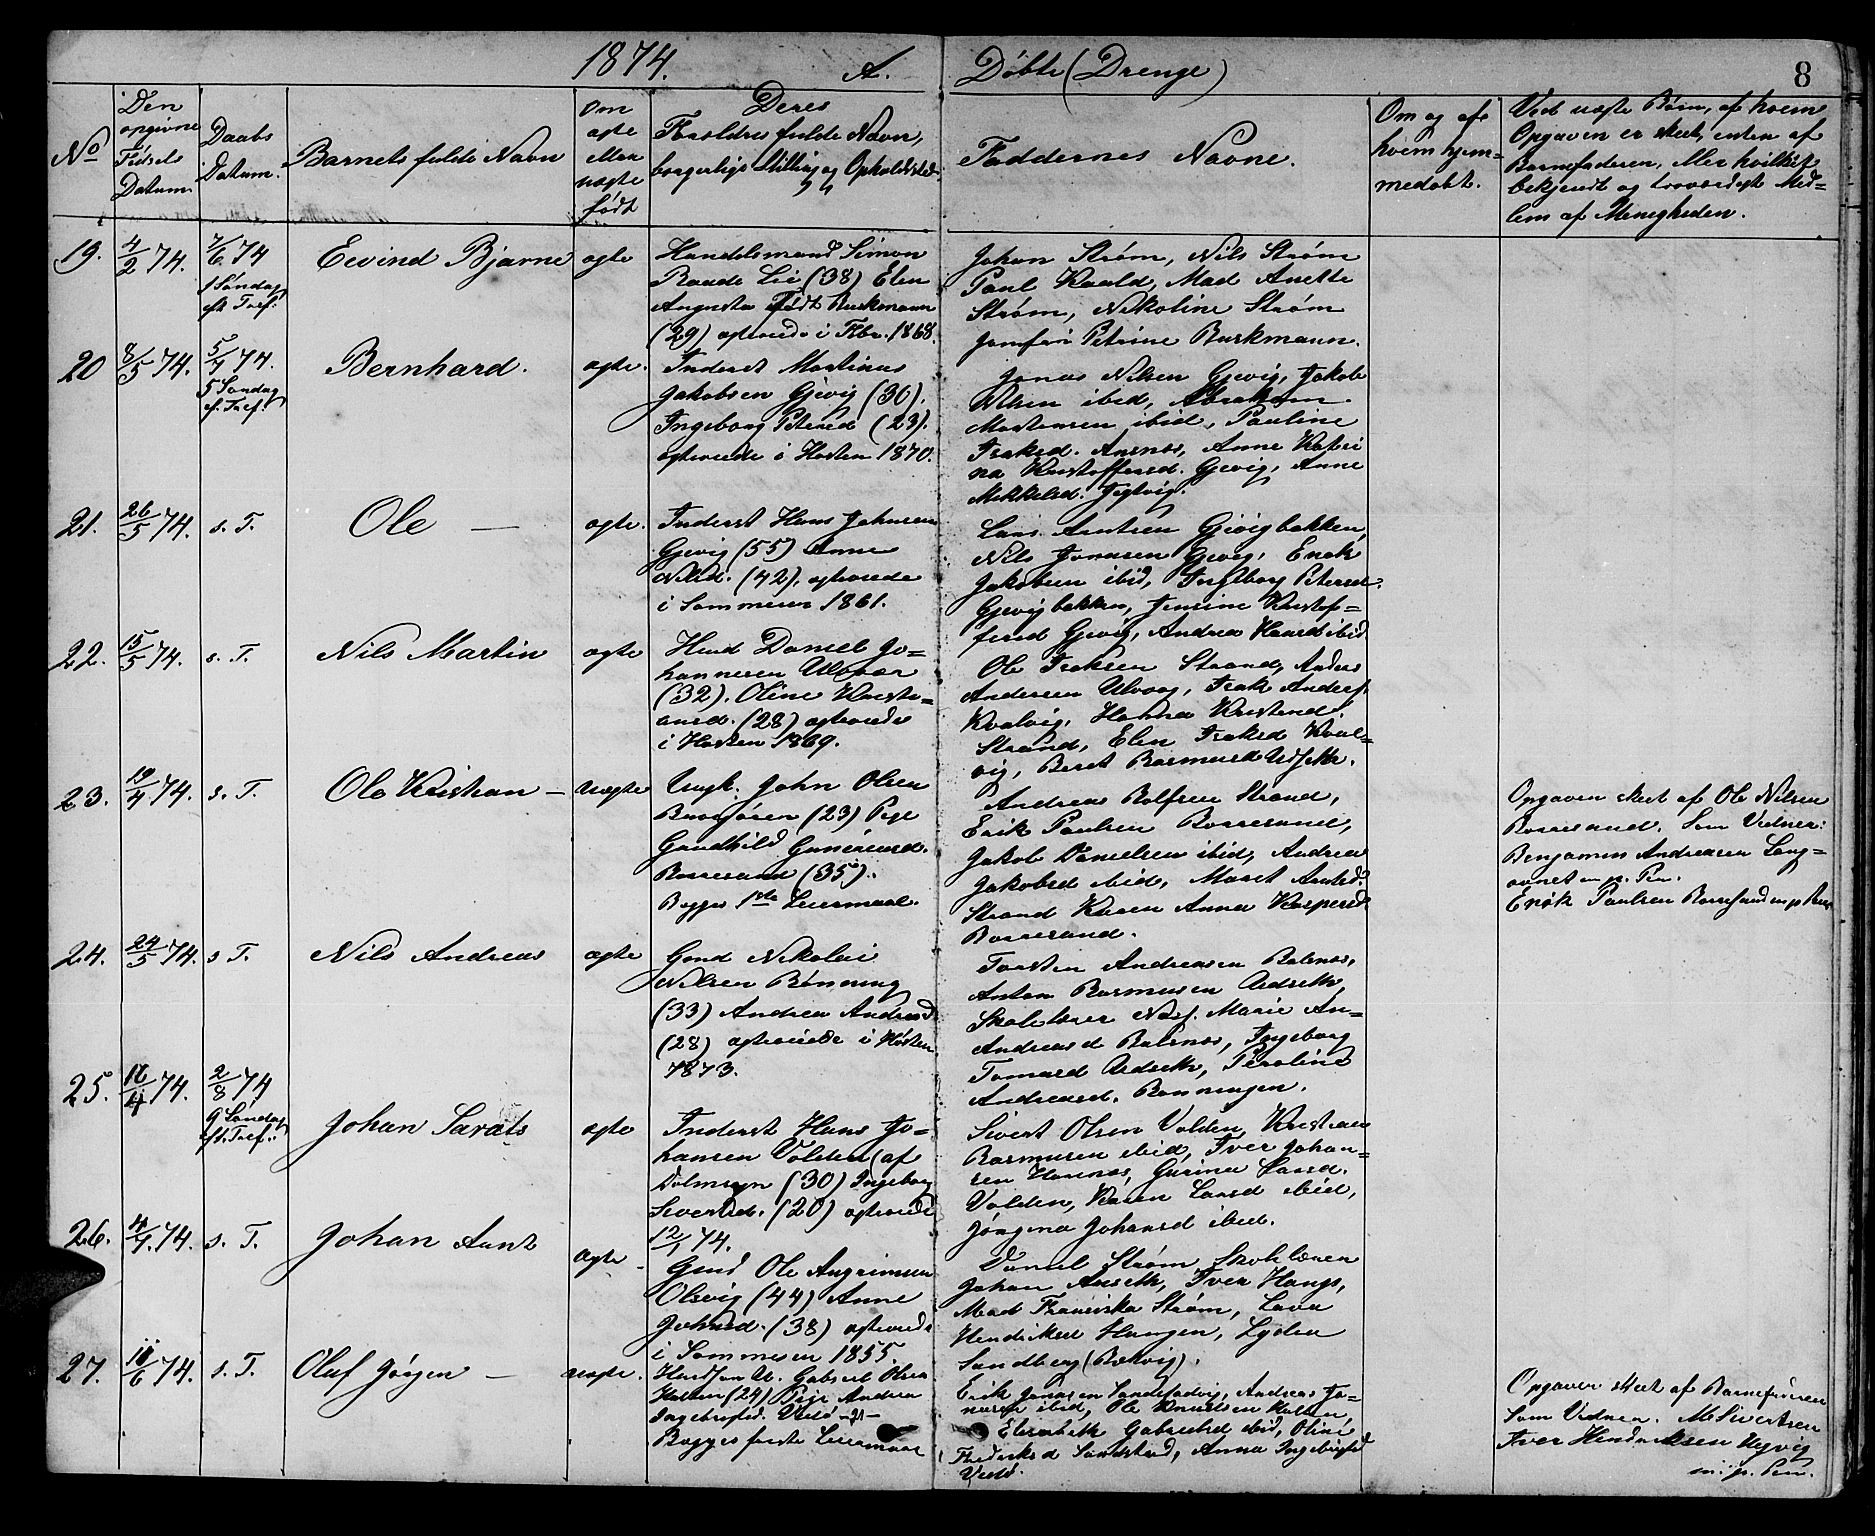 1874. A. Døbte (Drenge) 8
No
Den opgivne Fødsels Datum.
Daabs Datum.
Barnets fulde Navn
Om ægte eller uægte født
Deres Forældres fulde Navn, borgerlige Stilling og Opholdssted.
Faddernes Navne.
Om og af hvem hjemmedøbt.
Ved uægte Børn, af hvem Opgaven er skeet, enten af Barnefaderen, eller hvilket bekjendt og troværdigt Medlem af Menigheden.
19. 4/2 74. 7/6 74
1 Søndag
eft. Tref.
Eivind Bjarne
ægte
Handelsmand Simon
Raade Lie (38) Elen
Augusta født Buckmann
(29) ægteviede i Febr. 1868.
Johan Strøm, Nils Strøm
Paul Kvald, Mad Anette
Strøm, Nikoline Strøm
Jomfru Petrine Buckmann.
20 8/5 74. 5/7 74.
5 Søndag
ef. Tref.
Bernhard.
ægte.
Inderst Martinus
Jakobsen Gjevig (30).
Ingeborg Petersd (23).
ægteviede i Høsten 1870.
Jonas Nilsen Gjevig, Jakob
Olsen ibid, Abraham
Mortensen ibid, Pauline
Isaksd. Aunes, Anne Katri
na Kristoffersd. Gjevig, Anne
Mikkelsd.
21. 26/5 74. s. T.
Ole —
ægte.
Inderst Hans Johnsen
Gjevig (55) Anne
Nilsd. (42), ægteviede
i Sommeren 1861.
Lars Arntsen Gjevigbakken,
Nils Jonasen Gjevig, Erik
Jakobsen ibid, Ingeborg Petersd.
Gjevigbakken, Jensine Kristof=
fersd Gjevig, Andrea Hansd ibid
22. 15/5 74. s. T.
Nils Martin
ægte
Daniel Jo=
hannesen Ulvær
(32). Oline Kristi=
ansd. (28) ægteviede
i Høsten 1869.
Ole Isaksen Strand, Anders
Andersen Ulvær, Isak Anders.
Kvalvig, Hanna Kristensd.
Strand, Elen Isaksd Kval=
vig, Beret Rasmusd Udseth.
23. 19/4 74. s. T.
Ole Kristian —
uægte
Ungk. John Olsen
(23) Pige
Gundhild Gunerusd.
Borresand (35).
Begges 1ste Leiermaal.
Andreas Rolfsen Strand,
Erik Paulsen Borresand,
Jakob Danielsen ibid, Andrea
Jakobsd ibid, Maret Arntsd.
Strand Karen Anna Kaspersd.
Borresand.
Opgaven skeet af Ole Nilsen
Borresand. Som Vidner:
Benjamin Andreasen Lang=
m. p. Pen.
Erik Paulsen Borresand m p Pen
24. 24/5 74. s T.
Nils Andreas
ægte
Gmd Nikolai
Nilsen Rønning
(33) Andrea Andreasd
(28) ægteviede i Høsten
1873.
Torsten Andreasen Balsnes,
Anton Rasmusen Udseth,
Skolelærer Næss. Marie An=
Andreasd Balsnes, Ingeborg
Tomasd Udseth, Peroline
Andreasd. Rønningen.
25. 18/4 74. 2/8 74
9 Søndag
eft. Tref.
Johan Sarats
ægte
Inderst Hans Jo=
hansen Volden (af
Dolmøyn (30) Ingeborg
Sivertsd. (20) ægteviede
12/1 74.
Sivert Olsen Volden, Kristian
Rasmusen ibid, Iver Johan=
sen Hannas, Gurina Larsd.
Volden, Karen Larsd ibid,
Jørgina Johansd ibid.
26. 4/7. 74. s. T.
Johan Arnt
ægte
Gmd Ole Angrimsen
Olsvig (44) Anne
Johnsd. (38) ægteviede
i Sommeren 1855.
Daniel Strøm, Skolelærer
Johan Anseth, Iver Haugs,
Mad Franciska Strøm, Lava
Henriksd Haugen, Lydia
Sandberg (Bekvig).
27. 18/6 74. s. T.
Oluf Jørgen —
uægte.
Gabriel Olsen
Holten (24) Pige Andrea
Ingebrigtsd. Vedø
Begges første Leiermaal
Erik Jonasen Sandstadvig, Andreas Jo=
nasen ibid, Ole Knudsen Holten,
Elisabeth Gabrielsd ibid, Oline
Frediksd Sandstad, Anna Ingebrigtsd
Vedø.
Opgaver skeet af Barnefaderen
Som Vidner. M Sivertsen
Iver Hendriksen Ugvig
m. p. Pen.